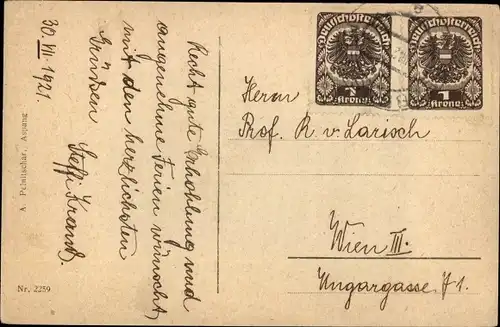 30. VII. 1921.
Recht gute Erhohlung und
angenehme Ferien wünscht
mit den herzlichsten
Grüßen
Steffi
A. Pelnitschar, Aspang
Nr. 2259
Deutschösterreich
1
Krone
Deutschösterreich
1
Krone
Herrn
Prof. R. v. Larisch
Wien III.
Ungargasse 71.